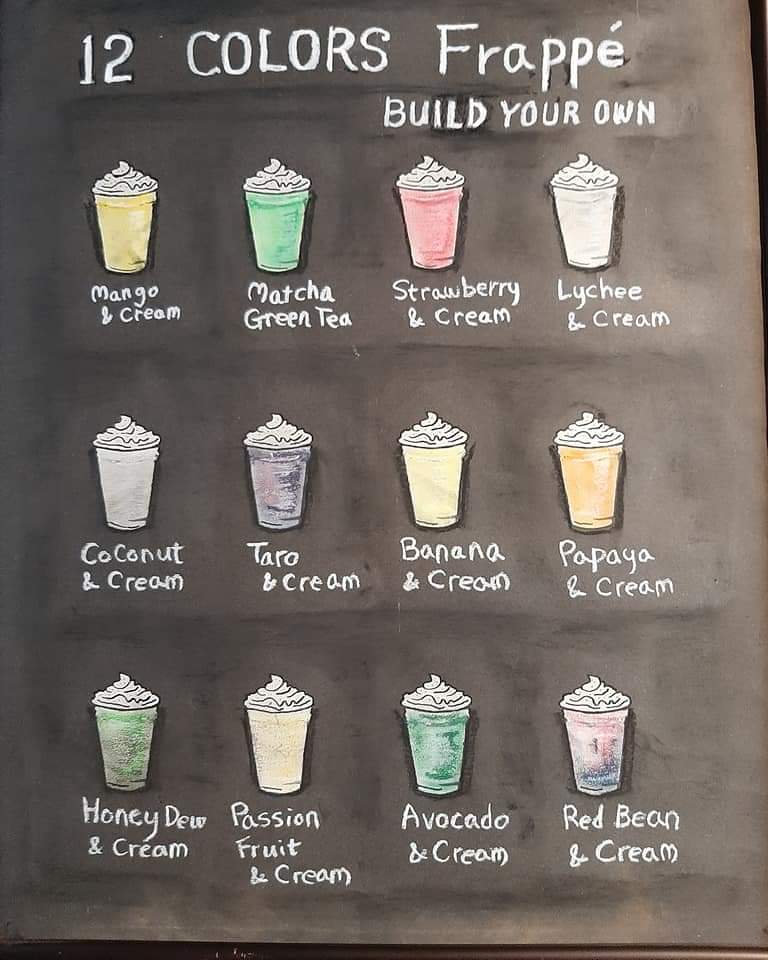 12 COLORS Frappé
BUILD YOUR OWN
Mango
& Cream
Matcha
Green Tea
Strawberry
& Cream
Lychee
& Cream
Coconut
& Cream
Taro
& Cream
Banana
& Cream
Papaya
& Cream
Honey Dew
& Cream
Passion
Fruit
& Cream
Avocado
& Cream
Red Bean
& Cream